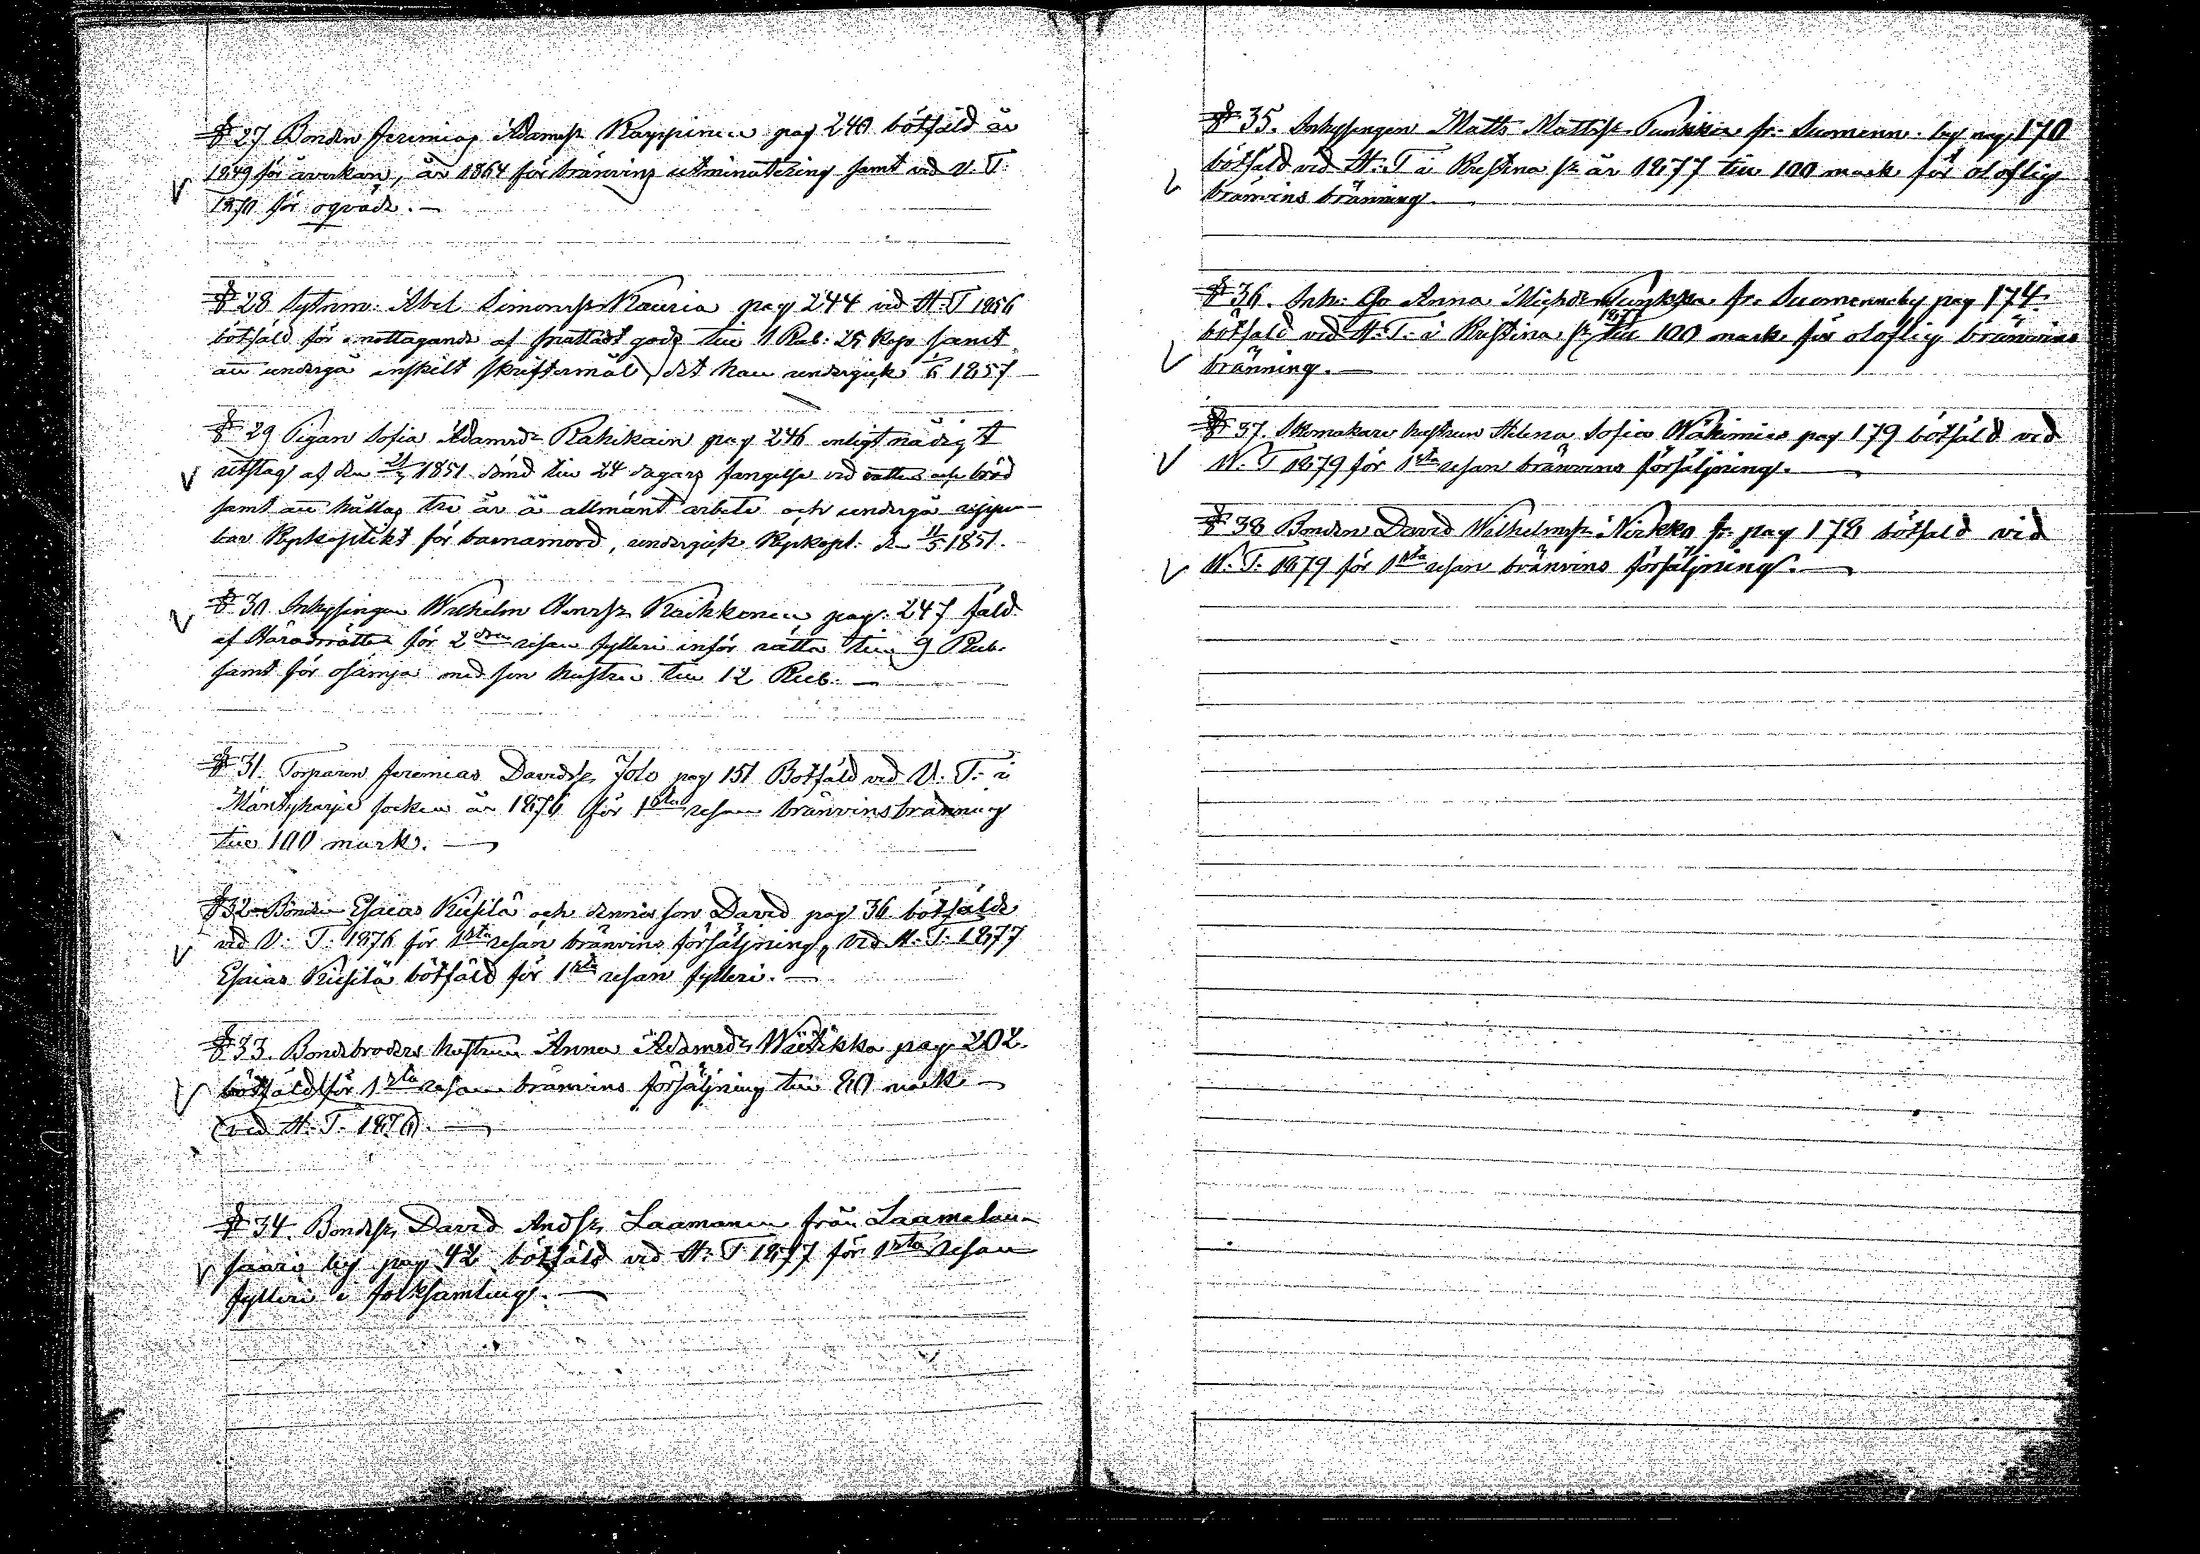 § 27 Bonden Jeremias Adamsp Kappinen pag 240 botfäld år
1849 för åverkan, år 1864 för bränvins utminutering samt vid V. T.
1870 för oqväde. —
§ 28 Sytnm: Abel Simonsp Kauria pag 244 vid H. T 1856
botfäld för mottagande af gods till 1 Rub: 25 Kop samt
att undergå enskilt skriftermål, det han undergick 1857
§ 29 Pigan Sofia Adamsdr Rahikain pag 246 enligt nådigt
utslag af den 1851 dömd till 24 dagars fängelse vid vatten och bröd
samt att hållas tre år å allmänt arbete och undergå uppen-
bar Kyrkoplikt för barnamord, undergick Kyrkopl. d. 11/5 1851.
§ 30 Inhysingen Wilhelm Henrsp Kaikkonen pag. 247 fäld
af Häradsrätten för 2dra resan fylleri inför rätta till 9 Rub.
samt för osämja med sin hustru till 12 Rub. —
§ 31. Torparen Jeremias Davidsp Jolo pag 151 Botfäld vid V. T. i
Mäntyharju socken år 1876 för 1sta resan bränvinsbränning
till 100 mark. —
§ 32 Bonden Esaias Kiesilä och dennes son David pag 36 botfälde
vid V. T. 1876 för 1sta resan bränvins försäljning, vid H. T. 1877
Esaias Kiesilä botfäld för 1sta resan fylleri. —
§ 33. Bondebroders hustrun Anna Adamsdr Wätikka pag 202.
botfäld för 1sta resan bränvins försäljning till 80 mark —
(vid H. T. 1876). —
§ 34. Bondesp David Andsp Laamanen från Laamalan-
saari by pag 42 botfäld vid H. T 1877 för 1sta resan
fylleri i folksamling. —
§ 35. Inhysingen Matts Mattsp Punkkin fr. Suomenn. by pag 170
botfäld vid H. T i Kristina sn år 1877 till 100 mark för oloflig
bränvins bränning. —
§ 36. Inh: Go Anna Michsdr fr. Suomenneby pag 174.
botfäld vid H. T. i Kristina sn 1877 till 100 mark för oloflig bränvins
bränning. —
§ 37. Skomakare hustrun Helena Sofia Wäkimies pag 179 botfäld vid
W. T 1879 för 1sta resan bränvins försäljning. —
§ 38 Bonden David Wilhelmsp Nirkko fr. pag 178 botfäld vid
W. T. 1879 för 1sta resan bränvins försäljning. —